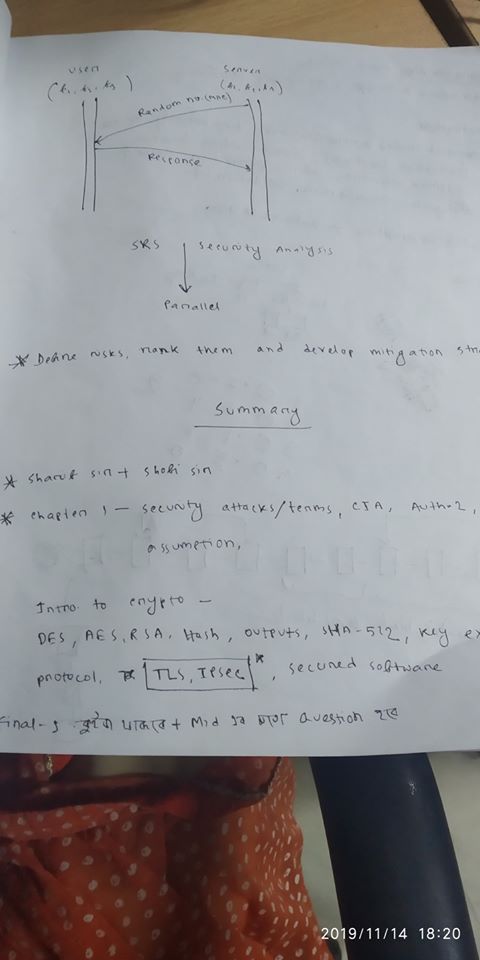 User
Server
(k1, k2, k3)
(k1, k2, k3)
Random no. (nonce)
Response
SRS
Security Analysis
Parallel
* Define risks, rank them and develop mitigation
Summary
* Sharif sir + Shohi sir
* Chapter 1 — security attacks/terms, CIA, Auth-2,
assumption,
Intro. to crypto —
DES, AES, RSA, Hash, outputs, SHA-512, Key
protocol, TLS, IPsec *, secured software
Final-এ + Mid এর Question হবে
2019/11/14 18:20